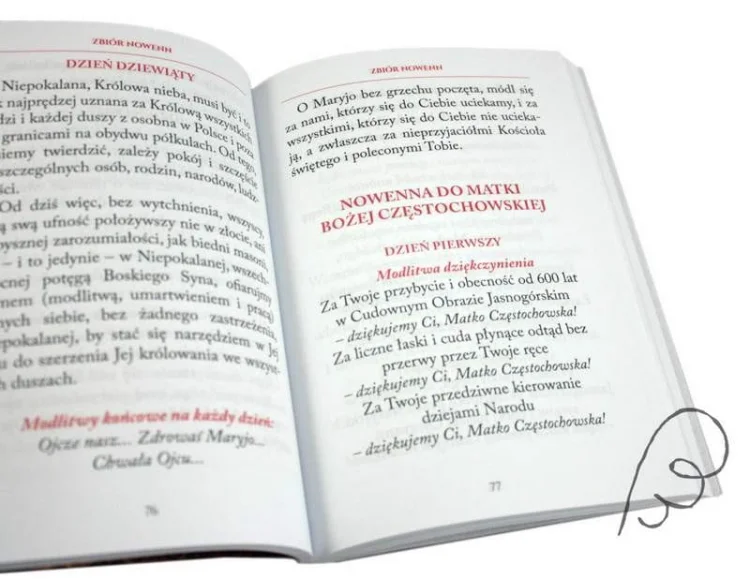 ZBIÓR NOWENN
DZIEŃ DZIEWIĄTY
Niepokalana, Królowa nieba, musi być i to
najprędzej uznana za Królową wszystkich
dzi i każdej duszy z osobna w Polsce i poza
granicami na obydwu półkulach. Od tego,
iemy twierdzić, zależy pokój i szczęście
szczególnych osób, rodzin, narodów, ludz-
ści.
Od dziś więc, bez wytchnienia, wszyscy,
ą swą ufność położywszy nie w złocie, ani
pysznej zarozumiałości, jak biedni masoni,
– i to jedynie – w Niepokalanej, wszech-
ocnej potęgą Boskiego Syna, ofiarujmy
nem (modlitwą, umartwieniem i pracą)
nych siebie, bez żadnego zastrzeżenia,
epokalanej, by stać się narzędziem w Jej
u do szerzenia Jej królowania we wszyst-
h duszach.
Modlitwy końcowe na każdy dzień:
Ojcze nasz... Zdrowaś Maryjo...
Chwała Ojcu...
76
ZBIÓR NOWENN
O Maryjo bez grzechu poczęta, módl się
za nami, którzy się do Ciebie uciekamy, i za
wszystkimi, którzy się do Ciebie nie ucieka-
ją, a zwłaszcza za nieprzyjaciółmi Kościoła
świętego i poleconymi Tobie.
NOWENNA DO MATKI
BOŻEJ CZĘSTOCHOWSKIEJ
DZIEŃ PIERWSZY
Modlitwa dziękczynienia
Za Twoje przybycie i obecność od 600 lat
w Cudownym Obrazie Jasnogórskim
– dziękujemy Ci, Matko Częstochowska!
Za liczne łaski i cuda płynące odtąd bez
przerwy przez Twoje ręce
– dziękujemy Ci, Matko Częstochowska!
Za Twoje przedziwne kierowanie
dziejami Narodu
– dziękujemy Ci, Matko Częstochowska!
77